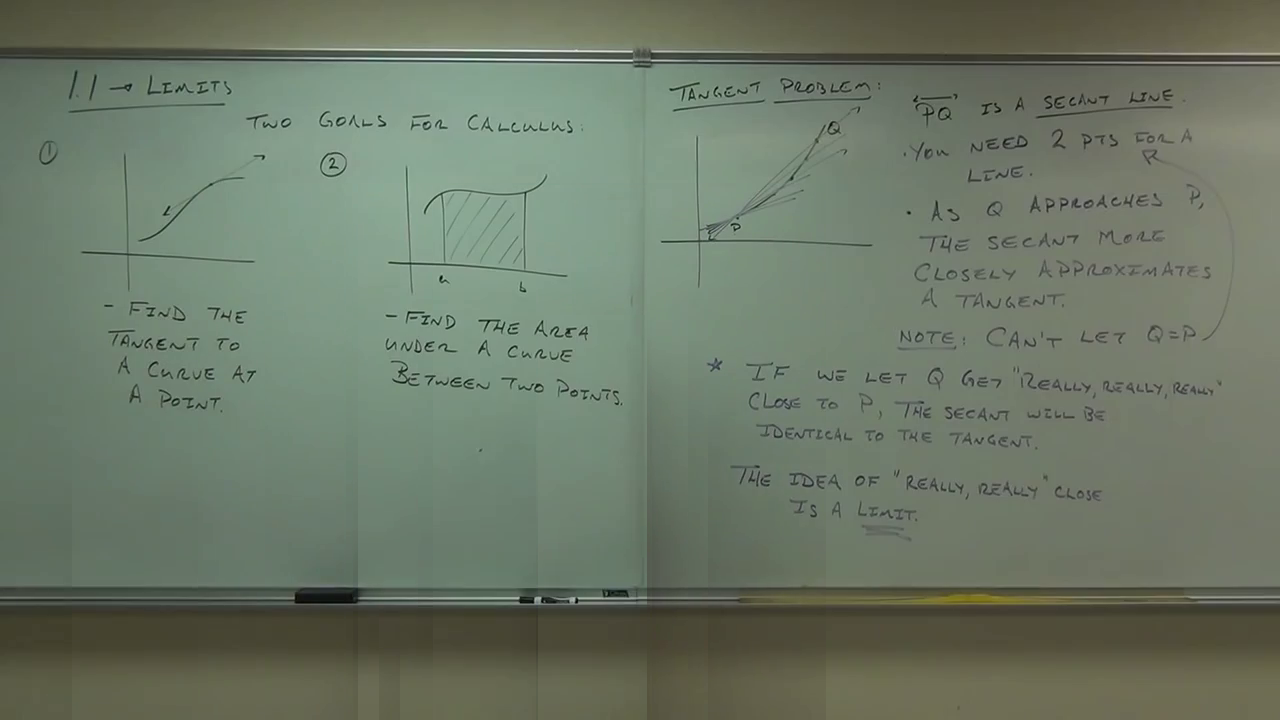 1.1 → LIMITS
TWO GOALS FOR CALCULUS:
①
②
a
b
- FIND THE
TANGENT TO
A CURVE AT
A POINT.
- FIND THE AREA
UNDER A CURVE
BETWEEN TWO POINTS.
TANGENT PROBLEM:
Q
P
PQ IS A SECANT LINE.
• YOU NEED 2 PTS FOR A
LINE.
• AS Q APPROACHES P,
THE SECANT MORE
CLOSELY APPROXIMATES
A TANGENT.
NOTE: CAN'T LET Q=P
* IF WE LET Q GET "REALLY, REALLY, REALLY"
CLOSE TO P, THE SECANT WILL BE
IDENTICAL TO THE TANGENT.
THE IDEA OF "REALLY, REALLY" CLOSE
IS A LIMIT.